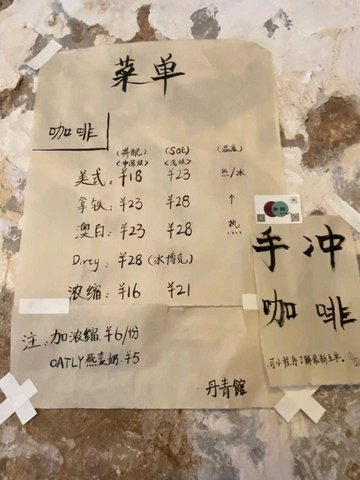 菜单
咖啡
(拼配) (SOE) (温度)
(中深烘) (浅烘)
美式: ¥18 ¥23 热/冰
拿铁: ¥23 ¥28 ↑
澳白: ¥23 ¥28 热
Dirty: ¥28 (冰博克)
浓缩: ¥16 ¥21
注: 加浓缩 ¥6/份
OATLY燕麦奶 ¥5
丹青館
手冲
咖啡